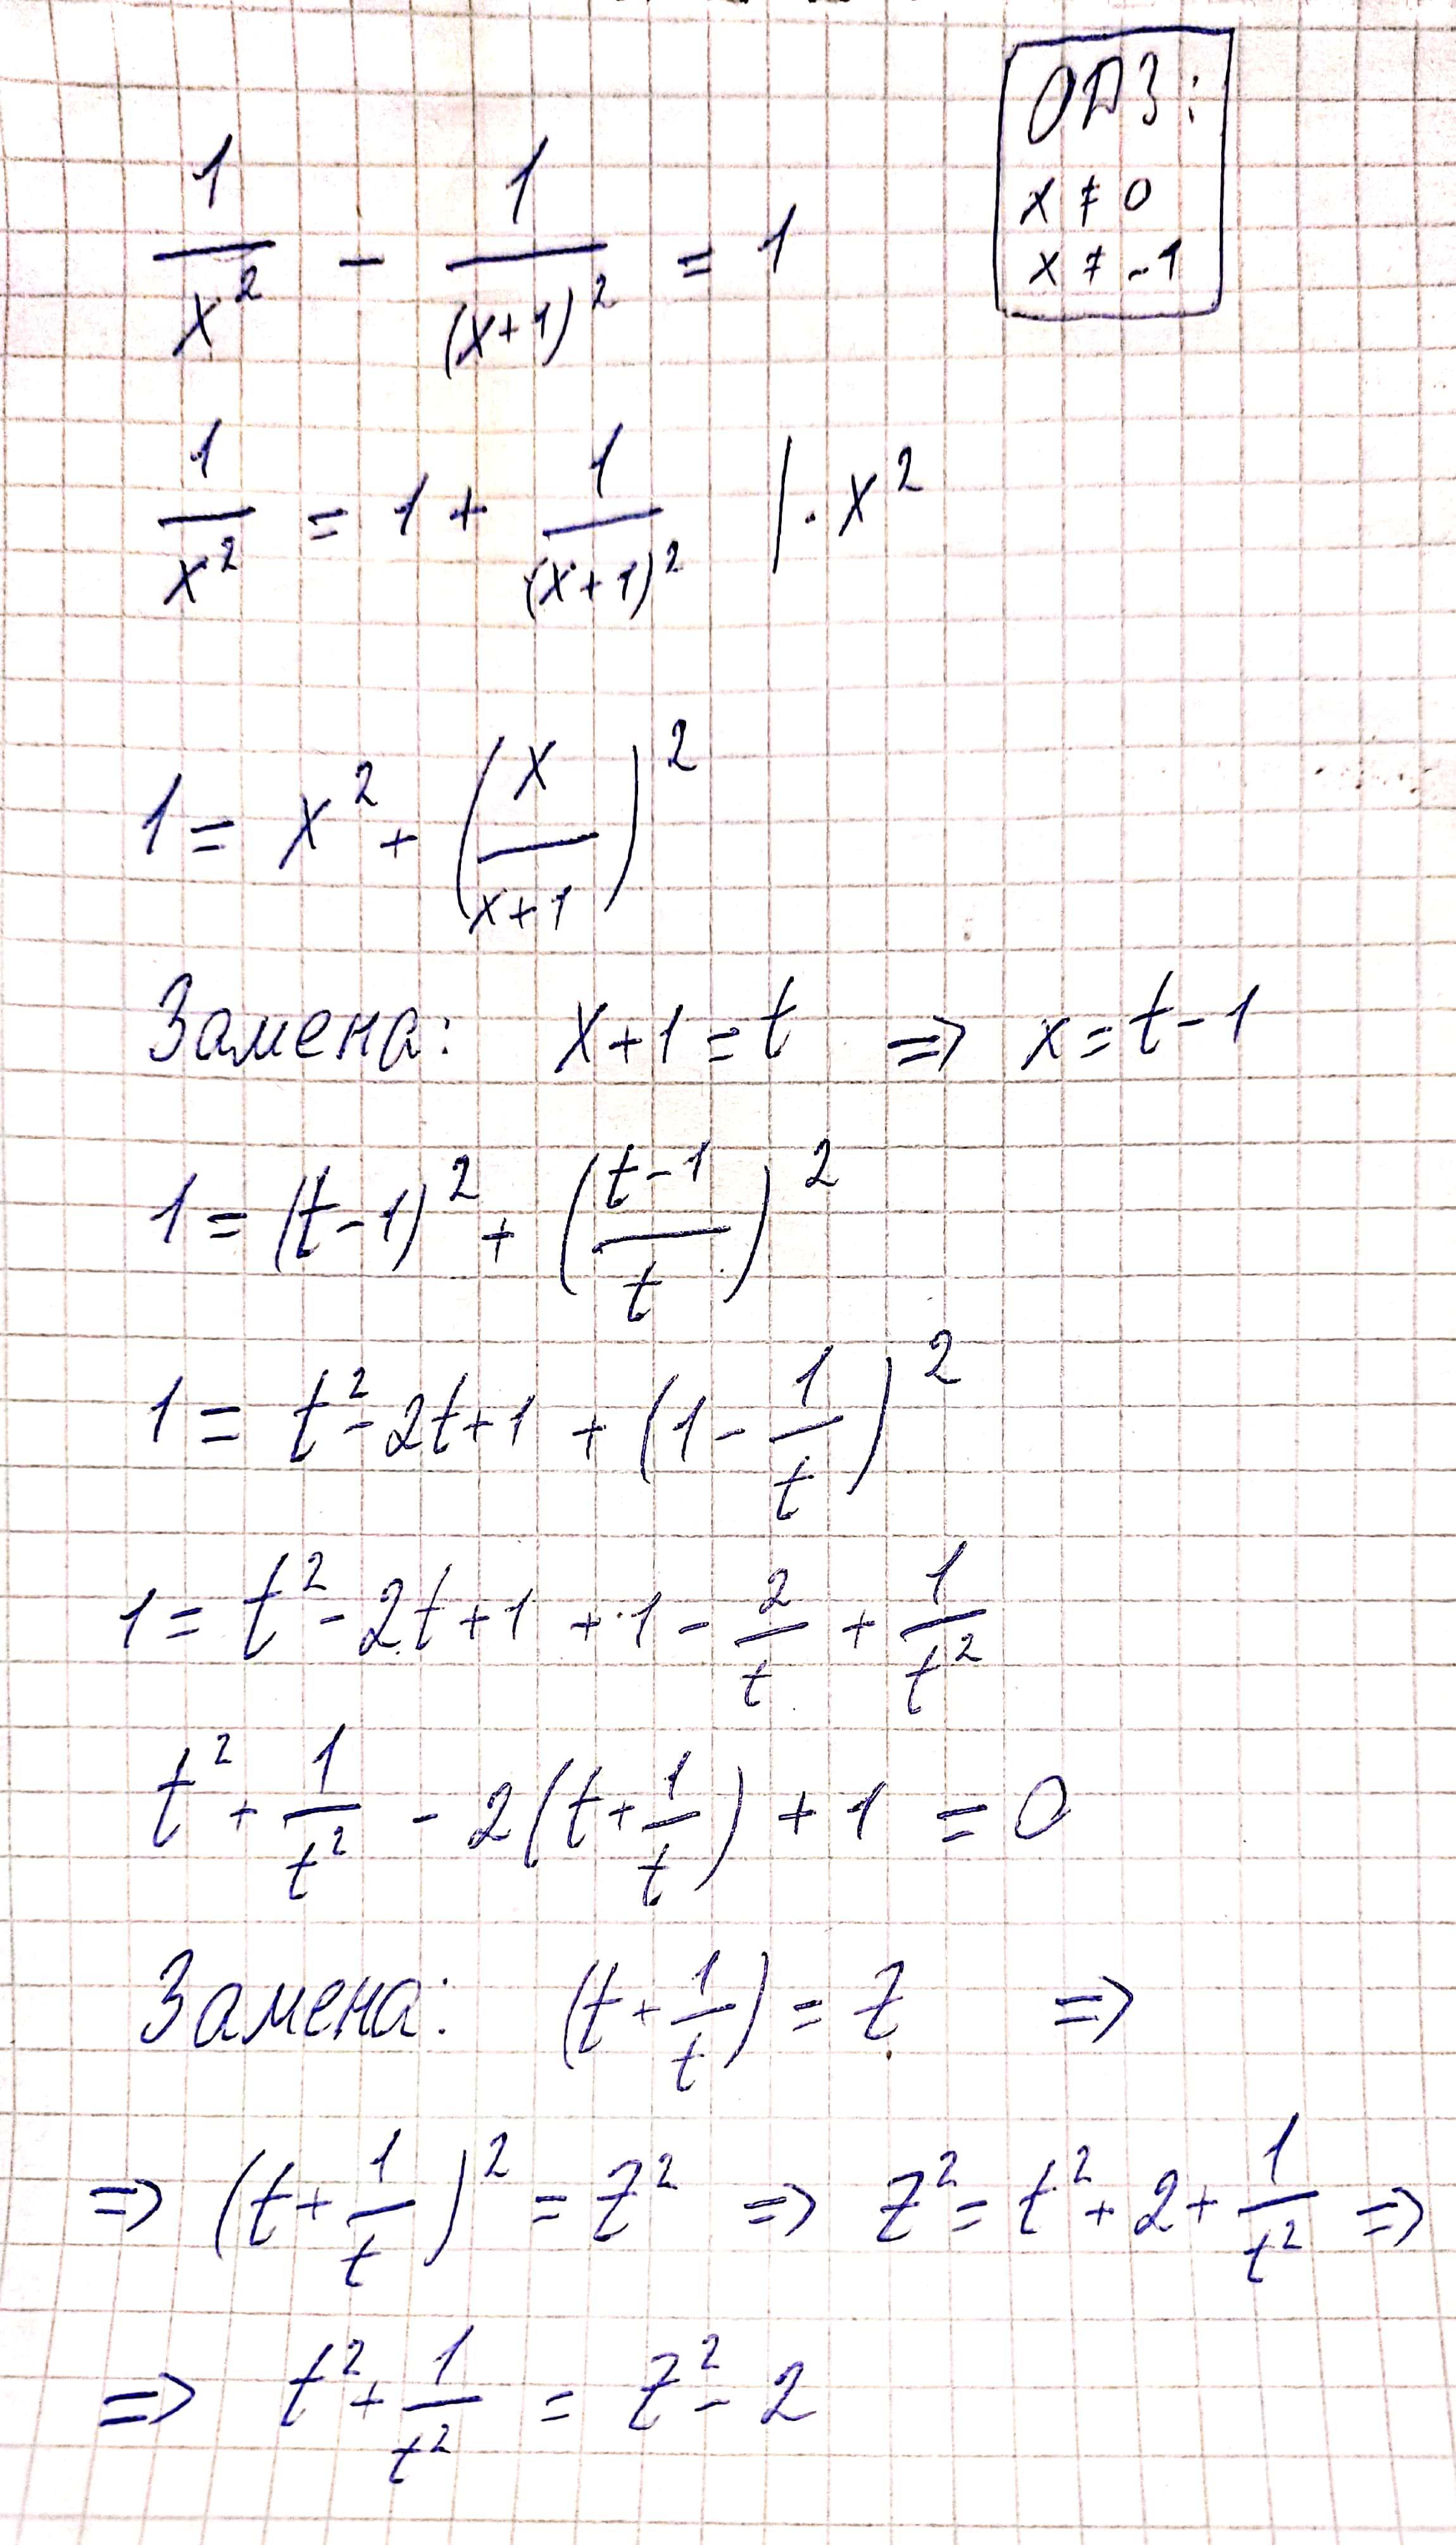 ОДЗ:
x ≠ 0
x ≠ -1
1/x² - 1/(x+1)² = 1
1/x² = 1 + 1/(x+1)² | · x²
1 = x² + (x/(x+1))²
Замена: x+1 = t => x = t-1
1 = (t-1)² + ((t-1)/t)²
1 = t² - 2t + 1 + (1 - 1/t)²
1 = t² - 2t + 1 + 1 - 2/t + 1/t²
t² + 1/t² - 2(t + 1/t) + 1 = 0
Замена: (t + 1/t) = z =>
=> (t + 1/t)² = z² => z² = t² + 2 + 1/t² =>
=> t² + 1/t² = z² - 2